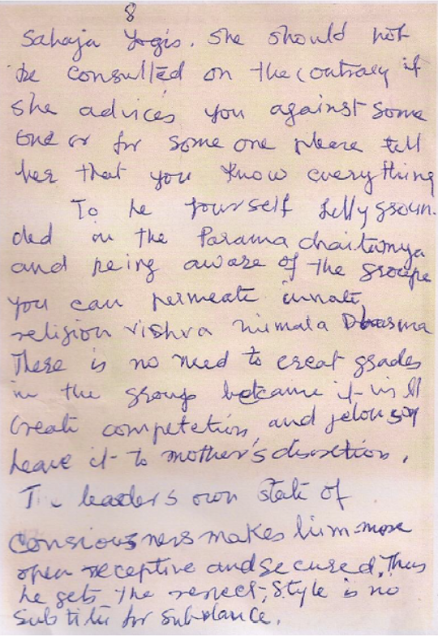 8
Sahaja Yogis. She should not
be consulted on the contrary if
she advices you against some
one or for some one please tell
her that you know everything
To be yourself fully groun
ded in the Parama chaitanya
and being aware of the groupe
you can permeate innate
religion vishva nirmala Dharma
There is no need to creat grades
in the group because it will
create competetion and jelousy
leave it to mother's discretion.
The leaders own state of
consiousness makes him more
open receptive and secured. Thus
he gets the respect, style is no
substitute for substance.